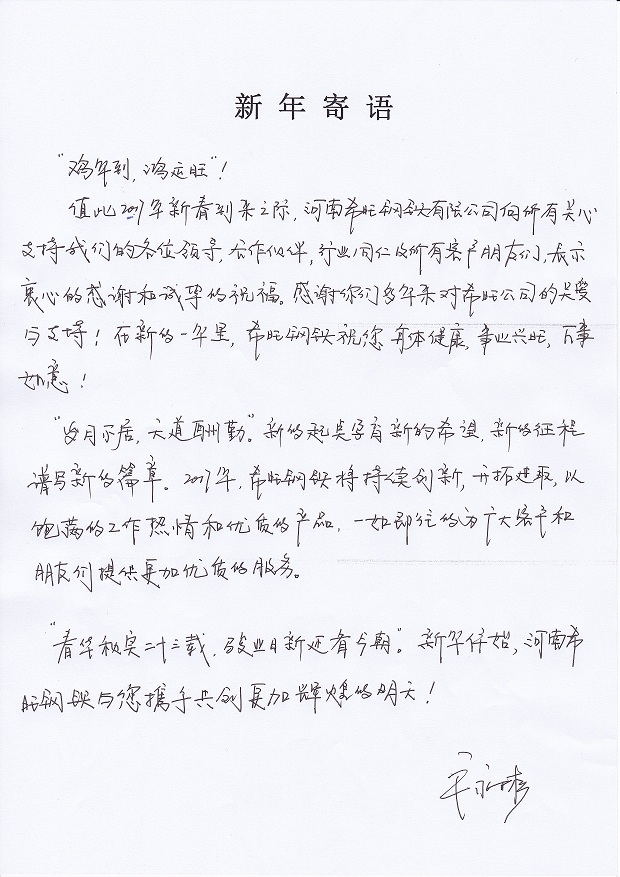 新年寄语
“鸡年到，鸿运旺”！
值此2017年新春到来之际，河南希旺钢铁有限公司向所有关心
支持我们的各位领导，合作伙伴，行业同仁及所有客户朋友们，表示
衷心的感谢和诚挚的祝福。感谢你们多年来对希旺公司的关爱
与支持！在新的一年里，希旺钢铁祝您身体健康，事业兴旺，万事
如意！
“岁月不居，天道酬勤”。新的起点孕育新的希望，新的征程
谱写新的篇章。2017年，希旺钢铁将持续创新，开拓进取，以
饱满的工作热情和优质的产品，一如即往的为广大客户和
朋友们提供更加优质的服务。
“春华秋实二十三载，骏业日新还看今朝”。新年伊始，河南希
旺钢铁与您携手共创更加辉煌的明天！